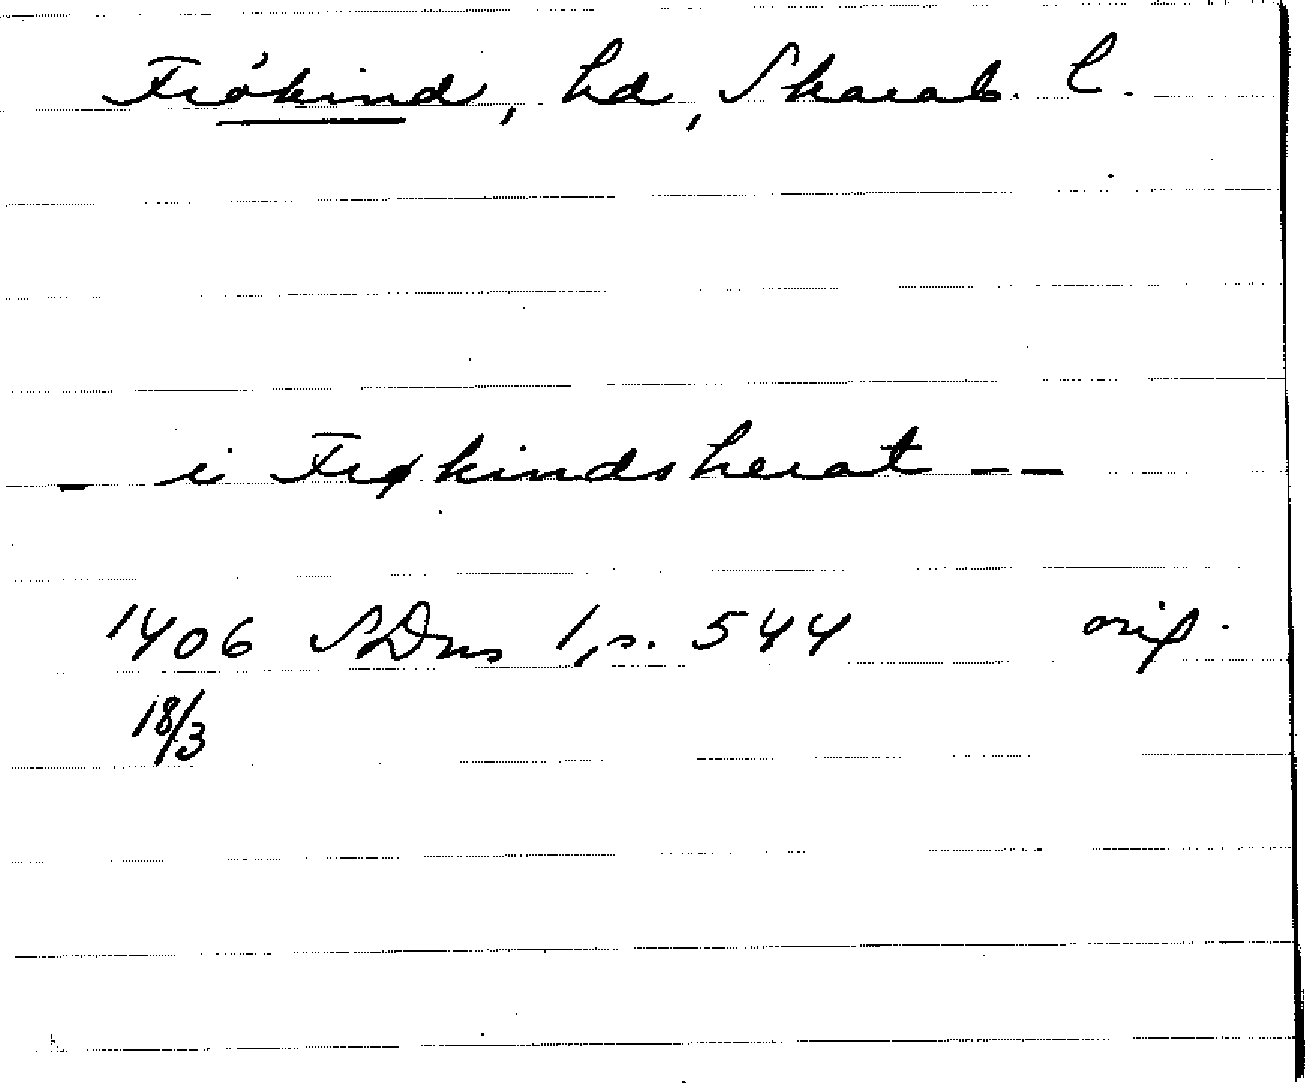 Frökind, hd, Skarab. l.
- i Frøkindsherat --
1406 SDns 1, s. 544 orig.
18/3